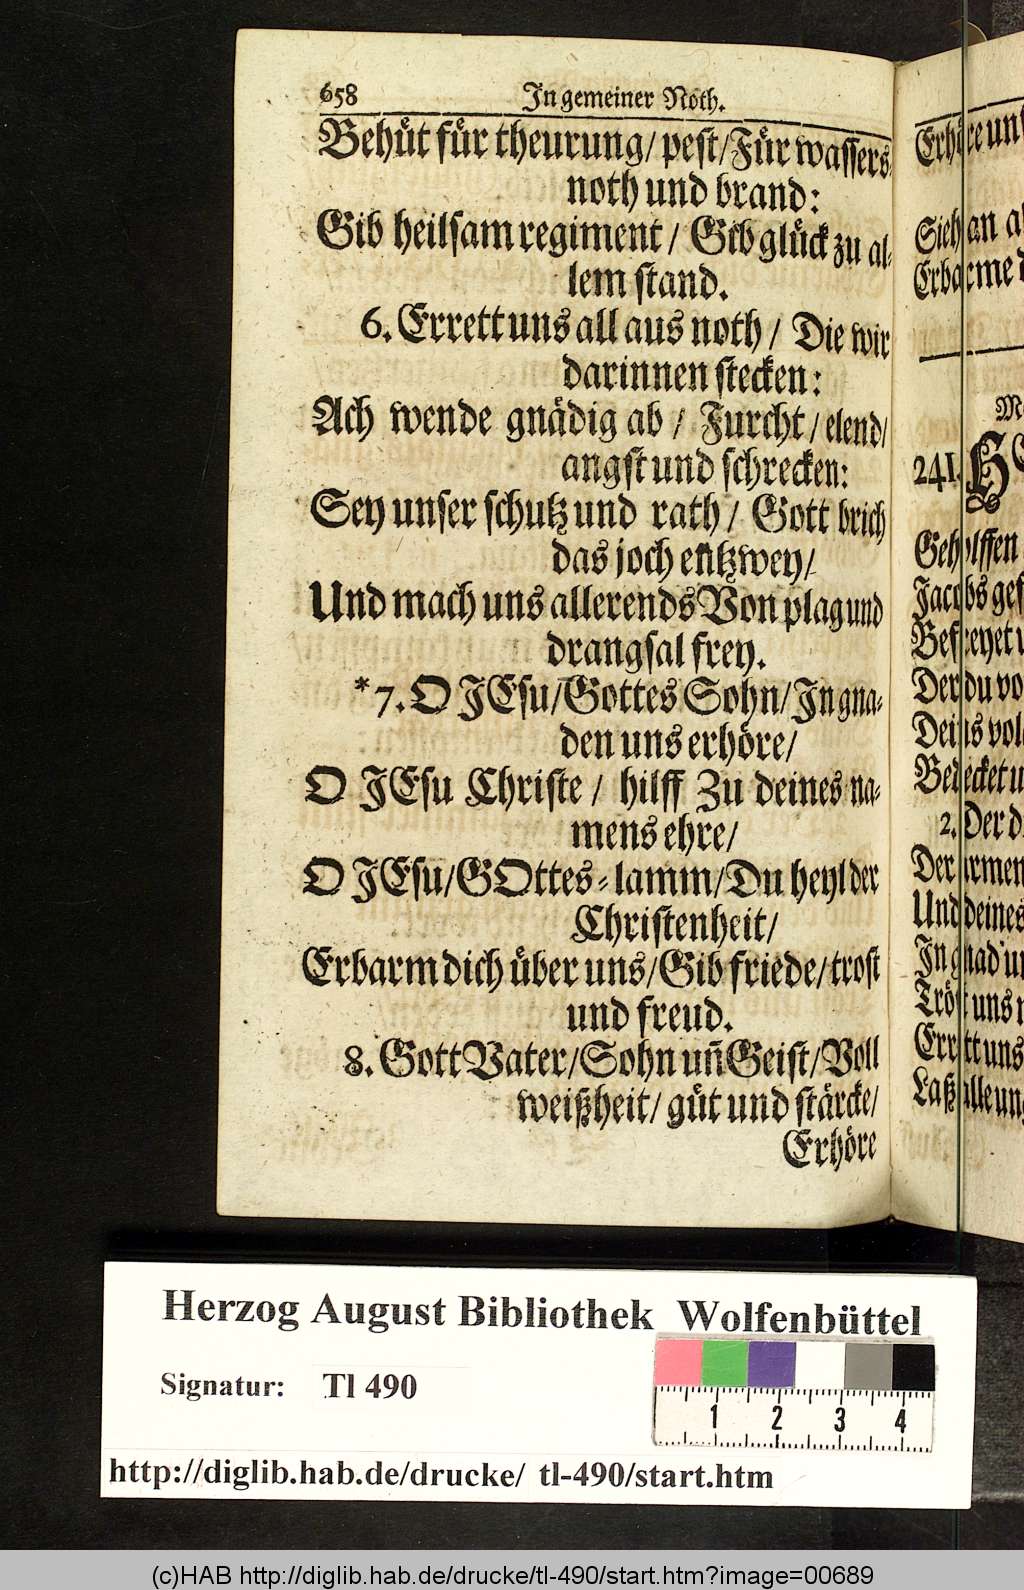 658 In gemeiner Noth.
Behüt für theurung/ pest/ Für wassers-
noth und brand:
Gib heilsam regiment / Gib glück zu al-
lem stand.
6. Errett uns all aus noth / Die wir
darinnen stecken:
Ach wende gnädig ab / Furcht / elend/
angst und schrecken:
Sey unser schutz und rath / Gott brich
das joch entzwey/
Und mach uns allerends Von plag und
drangsal frey.
*7. O JEsu/ Gottes Sohn/ In gna-
den uns erhöre/
O JEsu Christe / hilff Zu deines na-
mens ehre/
O JEsu/ GOttes-lamm/ Du heyl der
Christenheit/
Erbarm dich über uns/ Gib friede/ trost
und freud.
8. Gott Vater/ Sohn uñ Geist/ Voll
weißheit/ güt und stärcke/
Erhöre
Erhöre
Sieh an
Erbarme
241.
Geholffen
Jacobs
Befreyet
Der du
Deins
Bedecket
2. Der
Der armen
Und deines
In gnad
Tröst uns
Errett uns
Laß alle
Herzog August Bibliothek Wolfenbüttel
Signatur: Tl 490
1 2 3 4
http://diglib.hab.de/drucke/ tl-490/start.htm
(c)HAB http://diglib.hab.de/drucke/tl-490/start.htm?image=00689